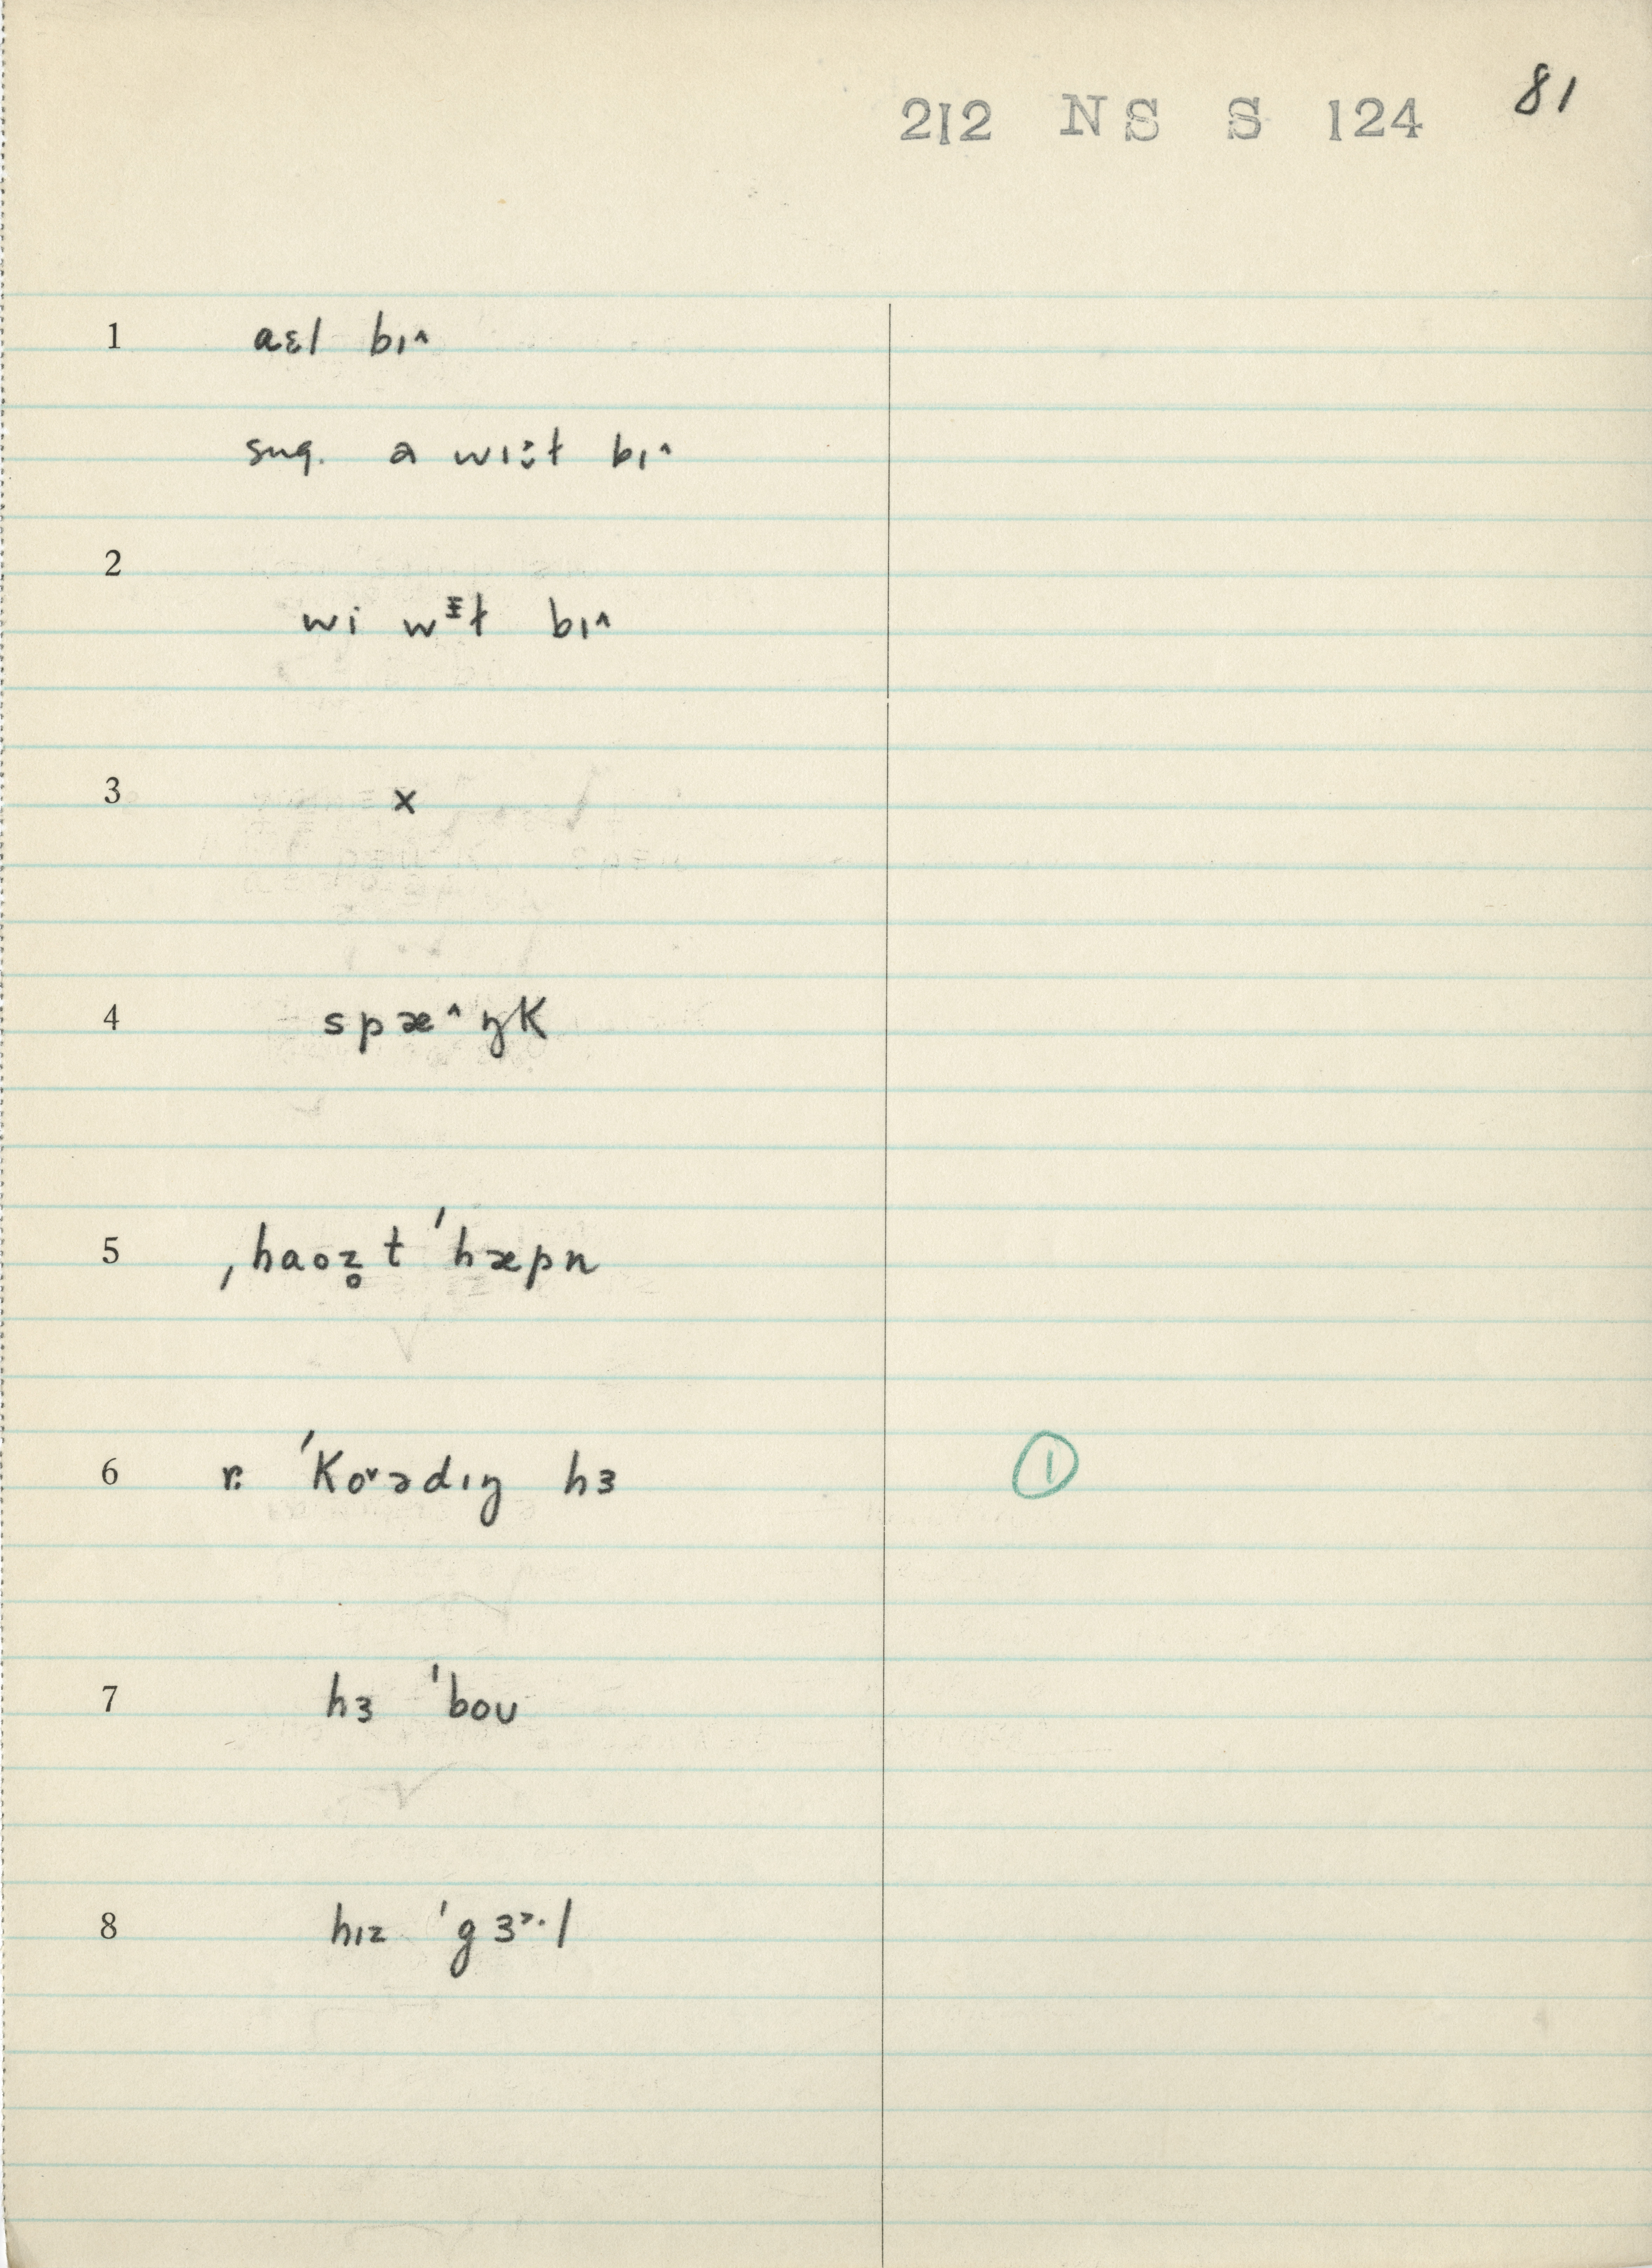 212 NS S 124 81
1 aɛl bɪ˄
sug. a wɪ:t bɪ˄
2
wi wᵻt bɪ˄
3 x
4 spæ˄ŋk
5 ˌhaoz̥ t ˈhæpn
6 r. ˈKo˅ədɪŋ hɜ 1
7 hɜ ˈboʊ
8 hɪz ˈgɜ˃·l